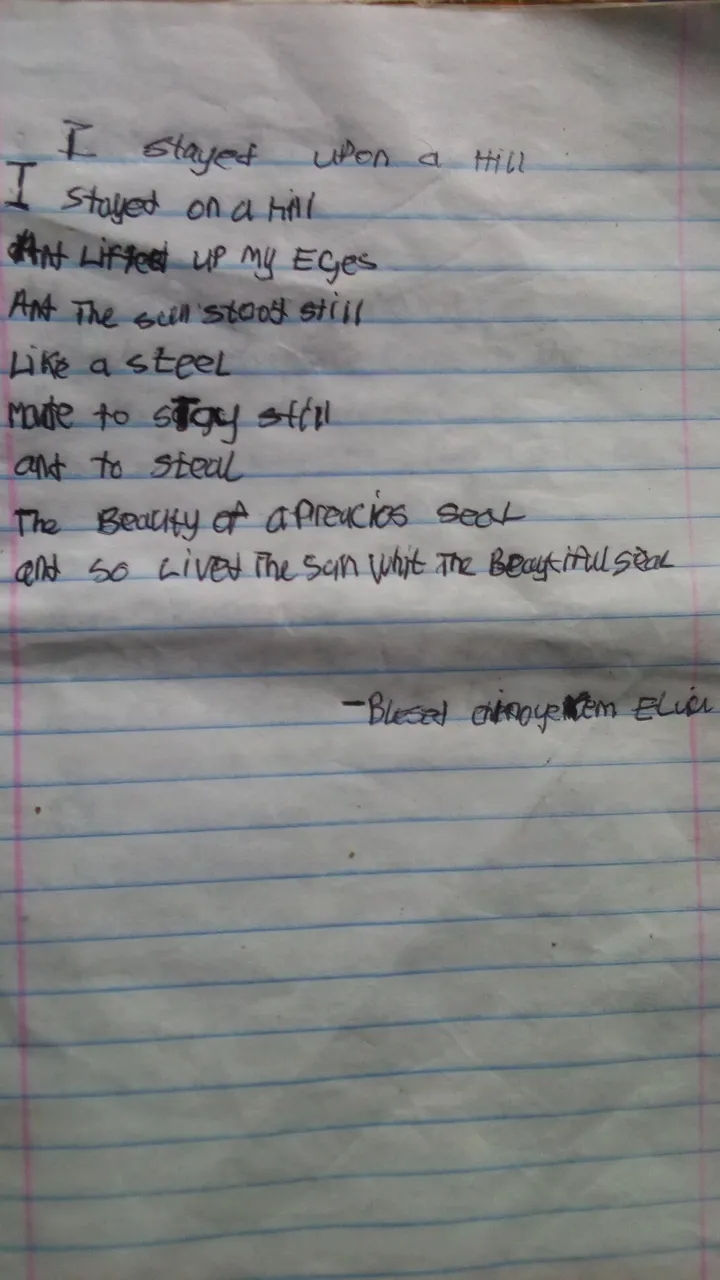 I stayed upon a Hill
I stayed on a Hill
And Lifted up my Eyes
And The sun stood still
Like a steel
made to stay still
and to steal
The Beauity of a Preucios seal
and so Lived The sun whit The Beautifull seal
-Blesed